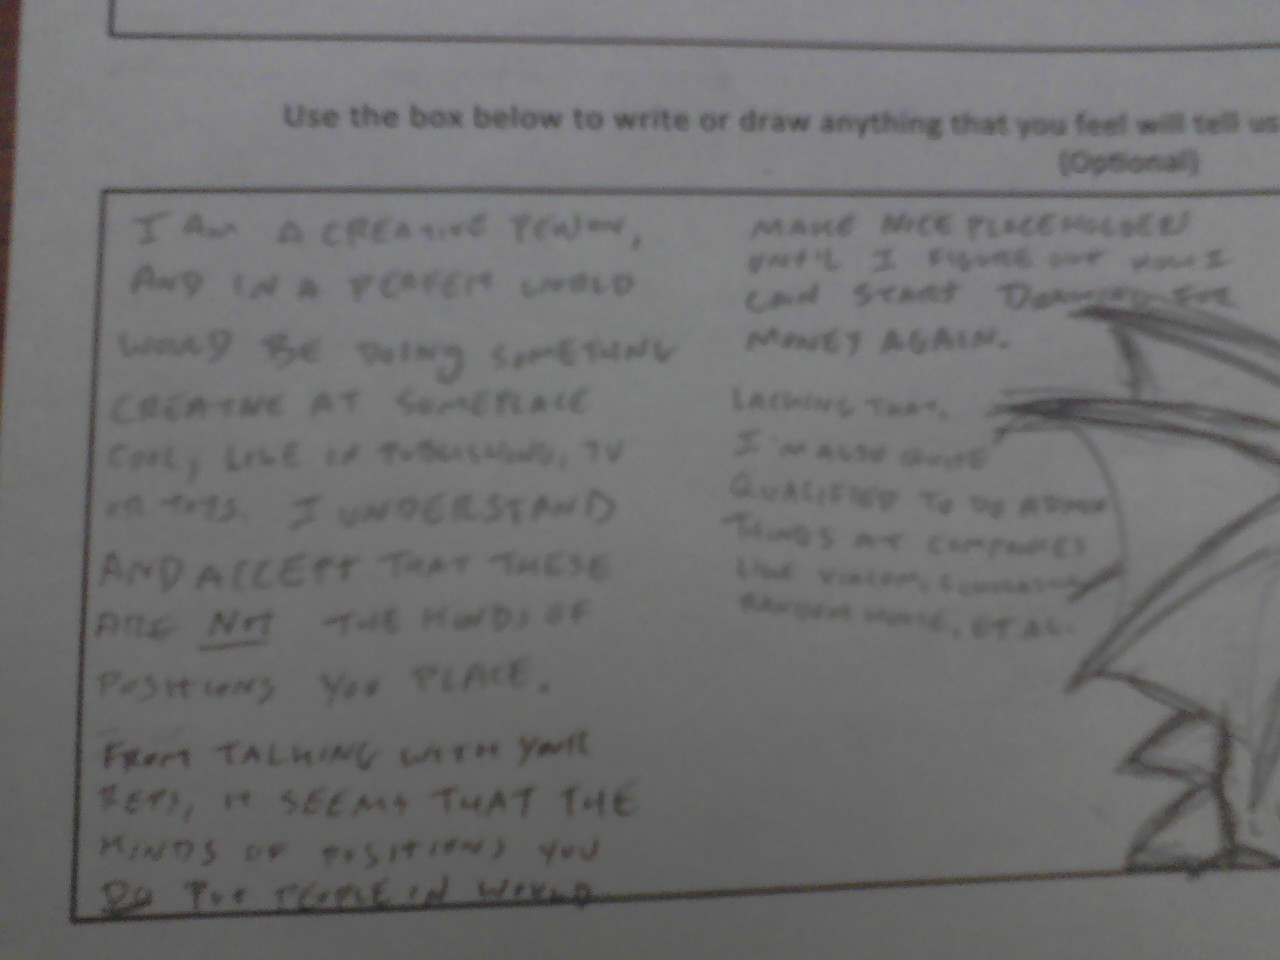 Use the box below to write or draw anything that you feel will tell us
(Optional)
I AM A CREATIVE PERSON,
AND IN A PERFECT WORLD
WOULD BE DOING SOMETHING
CREATIVE AT SOMEPLACE
COOL, LIKE IN PUBLISHING, TV
OR TOYS. I UNDERSTAND
AND ACCEPT THAT THESE
ARE NOT THE KINDS OF
POSITIONS YOU PLACE.
FROM TALKING WITH YOUR
REPS, IT SEEMS THAT THE
KINDS OF POSITIONS YOU
DO PUT PEOPLE IN WOULD
MAKE NICE PLACEHOLDERS
UNTIL I FIGURE OUT HOW I
CAN START DRAWING FOR
MONEY AGAIN.
LACKING THAT,
I'M ALSO QUITE
QUALIFIED TO DO ADMIN
THINGS AT COMPANIES
LIKE VIACOM,
RANDOM HOUSE, ET AL.